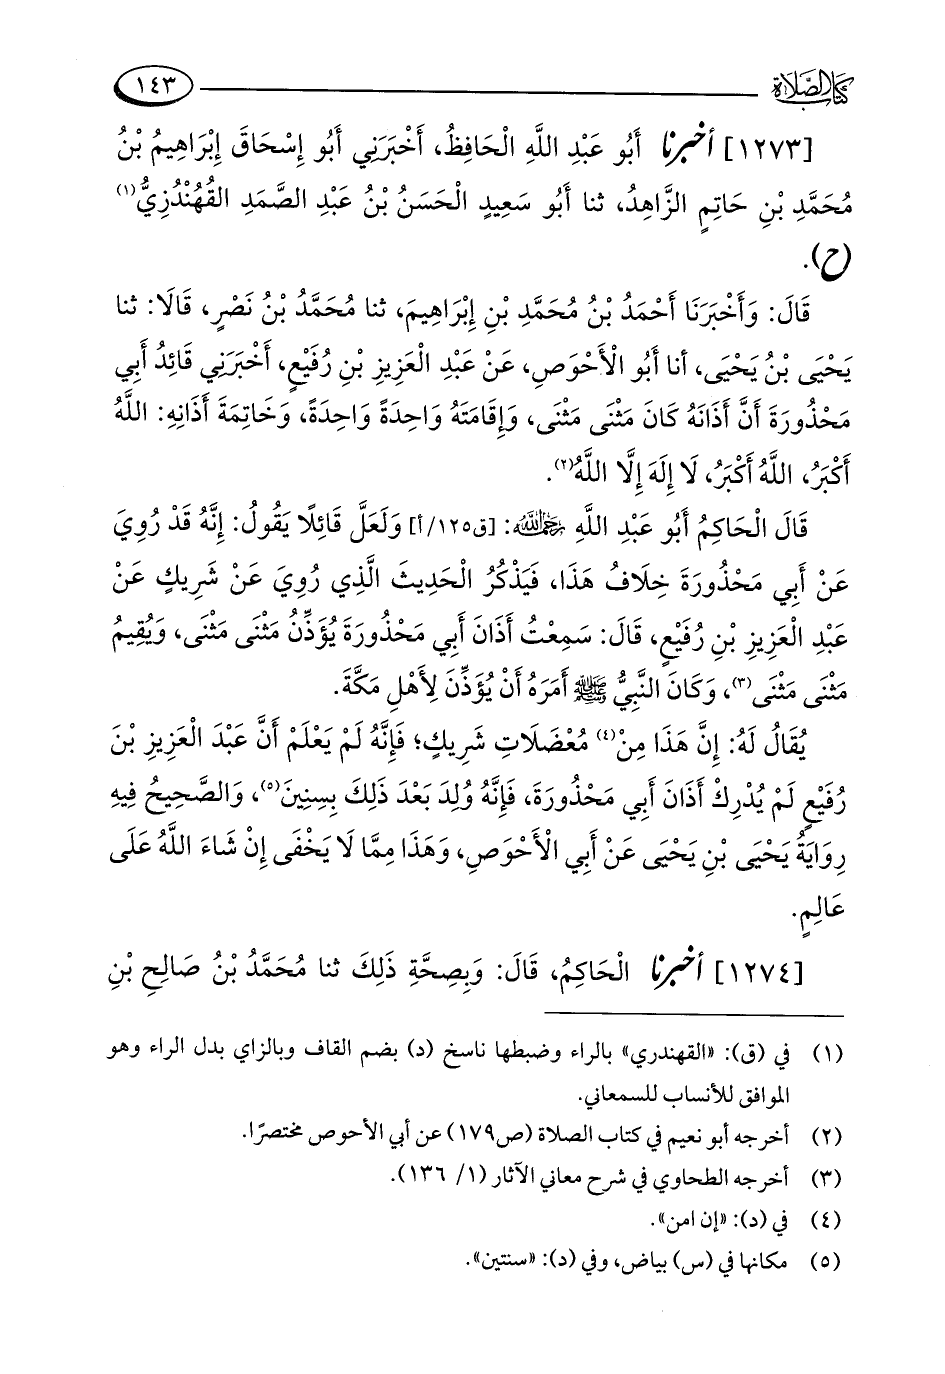 كتاب الصلاة ١٤٣
[١٢٧٣] أخبرنا أَبُو عَبْدِ اللَّهِ الْحَافِظُ، أَخْبَرَنِي أَبُو إِسْحَاقَ إِبْرَاهِيمُ بْنُ
مُحَمَّدِ بْنِ حَاتِمٍ الزَّاهِدُ، ثنا أَبُو سَعِيدٍ الْحَسَنُ بْنُ عَبْدِ الصَّمَدِ القُهُنْدُزِيُّ(١)
(ح).
قَالَ: وَأَخْبَرَنَا أَحْمَدُ بْنُ مُحَمَّدِ بْنِ إِبْرَاهِيمَ، ثنا مُحَمَّدُ بْنُ نَصْرٍ، قَالَا: ثنا
يَحْيَى بْنُ يَحْيَى، أنا أَبُو الْأَحْوَصِ، عَنْ عَبْدِ الْعَزِيزِ بْنِ رُفَيْعٍ، أَخْبَرَنِي قَائِدُ أَبِي
مَحْذُورَةَ أَنَّ أَذَانَهُ كَانَ مَثْنَى مَثْنَى، وَإِقَامَتَهُ وَاحِدَةً وَاحِدَةً، وَخَاتِمَةَ أَذَانِهِ: اللَّهُ
أَكْبَرُ، اللَّهُ أَكْبَرُ، لَا إِلَهَ إِلَّا اللَّهُ(٢).
قَالَ الْحَاكِمُ أَبُو عَبْدِ اللَّهِ رحمه الله: [ق١٢٥/أ] وَلَعَلَّ قَائِلًا يَقُولُ: إِنَّهُ قَدْ رُوِيَ
عَنْ أَبِي مَحْذُورَةَ خِلَافُ هَذَا، فَيَذْكُرُ الْحَدِيثَ الَّذِي رُوِيَ عَنْ شَرِيكٍ عَنْ
عَبْدِ الْعَزِيزِ بْنِ رُفَيْعٍ، قَالَ: سَمِعْتُ أَذَانَ أَبِي مَحْذُورَةَ يُؤَذِّنُ مَثْنَى مَثْنَى، وَيُقِيمُ
مَثْنَى مَثْنَى(٣)، وَكَانَ النَّبِيُّ ﷺ أَمَرَهُ أَنْ يُؤَذِّنَ لِأَهْلِ مَكَّةَ.
يُقَالُ لَهُ: إِنَّ هَذَا مِنْ(٤) مُعْضَلَاتِ شَرِيكٍ؛ فَإِنَّهُ لَمْ يَعْلَمْ أَنَّ عَبْدَ الْعَزِيزِ بْنَ
رُفَيْعٍ لَمْ يُدْرِكْ أَذَانَ أَبِي مَحْذُورَةَ، فَإِنَّهُ وُلِدَ بَعْدَ ذَلِكَ بِسِنِينَ(٥)، وَالصَّحِيحُ فِيهِ
رِوَايَةُ يَحْيَى بْنِ يَحْيَى عَنْ أَبِي الْأَحْوَصِ، وَهَذَا مِمَّا لَا يَخْفَى إِنْ شَاءَ اللَّهُ عَلَى
عَالِمٍ.
[١٢٧٤] أخبرنا الْحَاكِمُ، قَالَ: وَبِصِحَّةِ ذَلِكَ ثنا مُحَمَّدُ بْنُ صَالِحِ بْنِ
(١) في (ق): «القهندري» بالراء وضبطها ناسخ (د) بضم القاف وبالزاي بدل الراء وهو
الموافق للأنساب للسمعاني.
(٢) أخرجه أبو نعيم في كتاب الصلاة (ص١٧٩) عن أبي الأحوص مختصرًا.
(٣) أخرجه الطحاوي في شرح معاني الآثار (١/ ١٣٦).
(٤) في (د): «إن امن».
(٥) مكانها في (س) بياض، وفي (د): «سنتين».